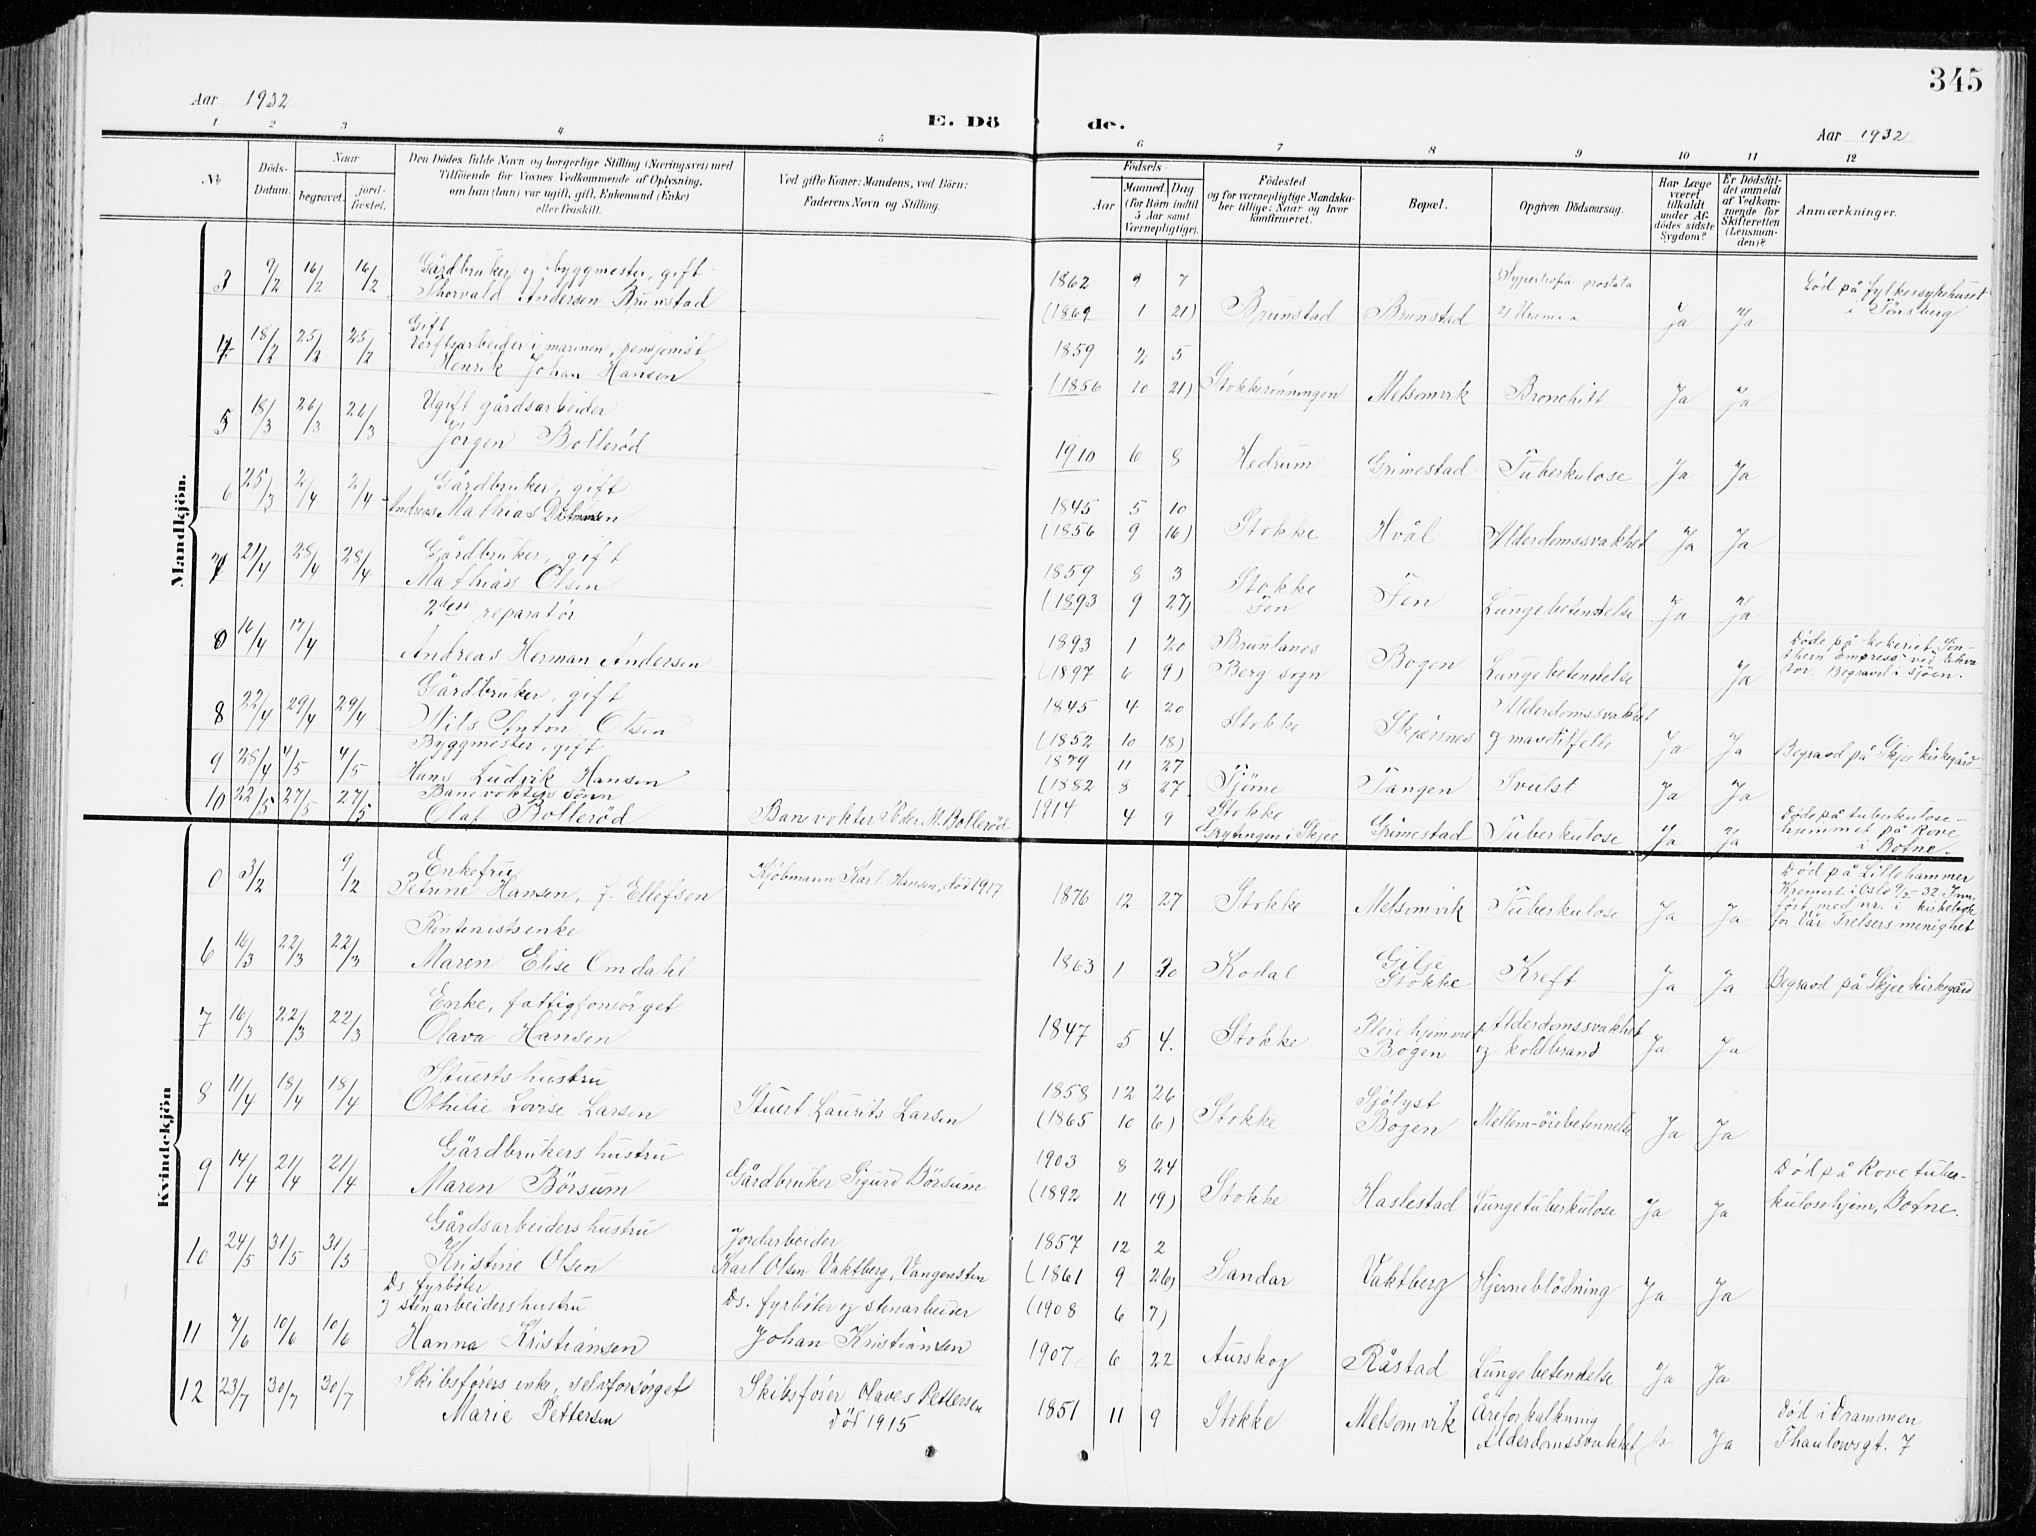 345
Aar 1932
E. Dö de.
Aar 1932
1 2 3 4 5 6 7 8 9 10 11 12
No
Döds-Datum.
Naar
begravet.
jord-fæstet.
Den Dödes fulde Navn og borgerlige Stilling (Næringsvei) med
Tilföiende for Voxnes Vedkommende af Oplysning,
om han (hun) var ugift, gift, Enkemand (Enke)
eller fraskilt.
Ved gifte Koner: Mandens, ved Börn:
Faderens Navn og Stilling.
Födsels-
Aar
Maaned. Dag
(for Börn indtil
5 Aar samt
Værnepligtige).
Födested
og for værnepligtige Mandska-
ber tillige: Naar og hvor
konfirmeret.
Bopæl.
Opgiven Dödsaarsag.
Har Læge
været
tilkaldt
under Af-
dödes sidste
Sygdom?
Er Dödsfal-
det anmeldt
af Vedkom-
mende for
Skifteretten
(Lensman-
den)?
Anmærkninger.
Mandkjön.
3 9/2 16/2 16/2 Gårdbruker og byggmester, gift
Thorvald Andersen Brunstad
1862 9 7
(1869 1 21) Brunstad Brunstad 1) Hypertrofia prostata
2) Uremia Ja Ja Död på fylkessykehuset
i Tönsberg
4 18/2 25/2 25/2 Gift
Verftsarbeider i marinen, pensjonist
Henrik Johan Hansen
1859 2 5
(1856 10 21) Stokkerönningen Melsomvik Bronchitt Ja Ja
5 18/3 26/3 26/3 Ugift gårdsarbeider
Jörgen Bollerød
1910 6 8 Hedrum Grimestad Tuberkulose Ja Ja
6 25/3 2/4 2/4 Gårdbruker, gift
Andreas Mathias
1845 5 10
(1856 9 16) Stokke Hvål Alderdomssvakhet Ja Ja
7 21/4 28/4 28/4 Gårdbruker, gift
Mathias Olsen
1859 8 3
(1893 9 27) Stokke
Fen Fen Lungebetendelse Ja Ja
0 16/4 17/4 2den reparatör
Andreas Herman Andersen
1893 1 20
(1897 6 9) Brunlanes
Berg sogn Bogen Lungebetendelse Ja Døde på kokeriet Sou-
thern Empress ved Ekva-
tor. Begravet i sjöen.
8 22/4 29/4 29/4 Gårdbruker, gift
Nils Anton Olsen
1845 4 20
(1852 10 18) Stokke Skjærsnes Alderdomssvakhet
og mavetilfelle Ja Ja
9 28/4 4/5 4/5 Byggmester, gift
Hans Ludvik Hansen
1879 11 27
(1882 8 27 Tjöme Tangen Svulst Ja Ja Begravd på Skjee kirkegård
10 22/5 27/5 27/5 Banevokters sönn
Olaf Bollerød Banevokter Peder M. Bollerød
1914 4 9 Stokke
Grytingen i Skjee Grimestad Tuberkulose Ja Ja Døde på tuberkulose-
hjemmet på Rove
i Botne.
Kvindekjön
0 3/2 9/2 Enkefru
Petrine Hansen, f. Ellefsen Kjöbmann Karl Hansen, död 1917
1876 12 27 Stokke Melsomvik Tuberkulose Ja Ja Död på Lillehammer
Kremert i Oslo 9/2 32. Inn-
ført med nr. i kirkebok
for Vår Frelsers menighet
6 16/3 22/3 22/3 Rentenistsenke
Maren Elise Omdahl
1863 1 30 Kodal Gilje
Stokke Kreft Ja Ja Begravd på Skjee kirkegård
7 16/3 22/3 22/3 Enke, fattigforsörget
Olava Hansen
1847 5 4. Stokke Pleiehjemmet
Bogen Alderdomssvakhet
og koldbrand Ja Ja
8 11/4 18/4 18/4 Stuerts hustru
Othilie Lovise Larsen Stuert Laurits Larsen
1858 12 26
(1865 10 6) Stokke Sjölyst
Bogen Mellem-örebetennelse Ja Ja
9 14/4 21/4 21/4 Gårdbrukers hustru
Maren Börsum Gårdbruker Sigurd Börsum
1903 8 24
(1892 11 19) Stokke Haslestad Lungetuberkulose Ja Ja Död på Rove tuber-
kulosehjem, Botne.
10 24/5 31/5 31/5 Gårdsarbeiders hustru
Kristine Olsen Jordarbeider
Karl Olsen Vaktberg, Vangensten
1857 12 2
(1861 9 26) Sandar Vaktberg Hjerneblödning Ja Ja
11 7/6 10/6 10/6 Ds fyrböter
og stenarbeiders hustru
Hanna Kristiansen Ds. fyrböter og stenarbeider
Johan Kristiansen
(1908 6 7)
1907 6 22 Aurskog Råstad Lungebetendelse Ja Ja
12 23/7 30/7 30/7 Skibsförers enke, selvforsörget
Marie Pettersen Skibsförer Olaves Pettersen
död 1915
1851 11 9 Stokke Melsomvik Åreforkalkning
Alderdomssvakhet Ja Ja Död i Drammen
Thaulowsgt. 7